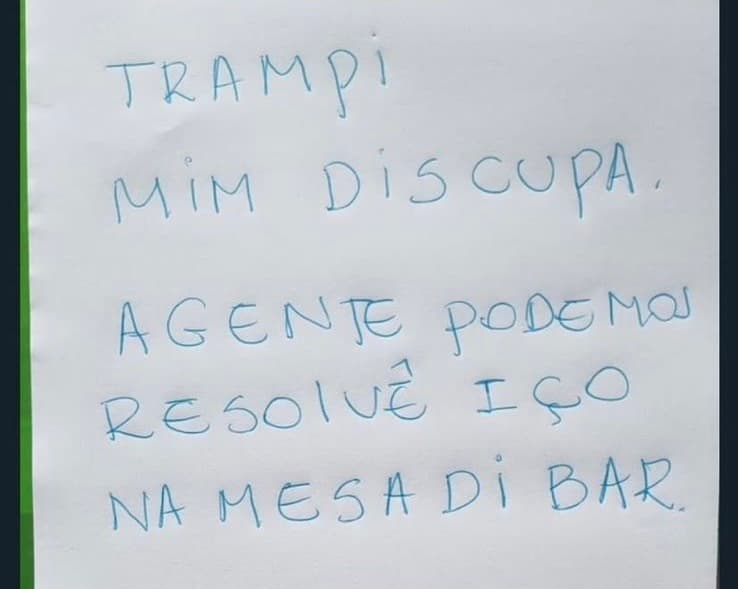 TRAMPi
MiM DiSCUPA.
AGENTE PODEMOS
RESOLVÊ IÇO
NA MESA Di BAR.